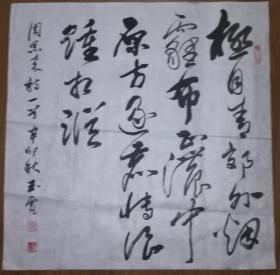 極目青郊外烟
霾布正濃中
原方逐鹿博浪
踵相蹤
周恩来诗一首 辛卯秋 玉雪